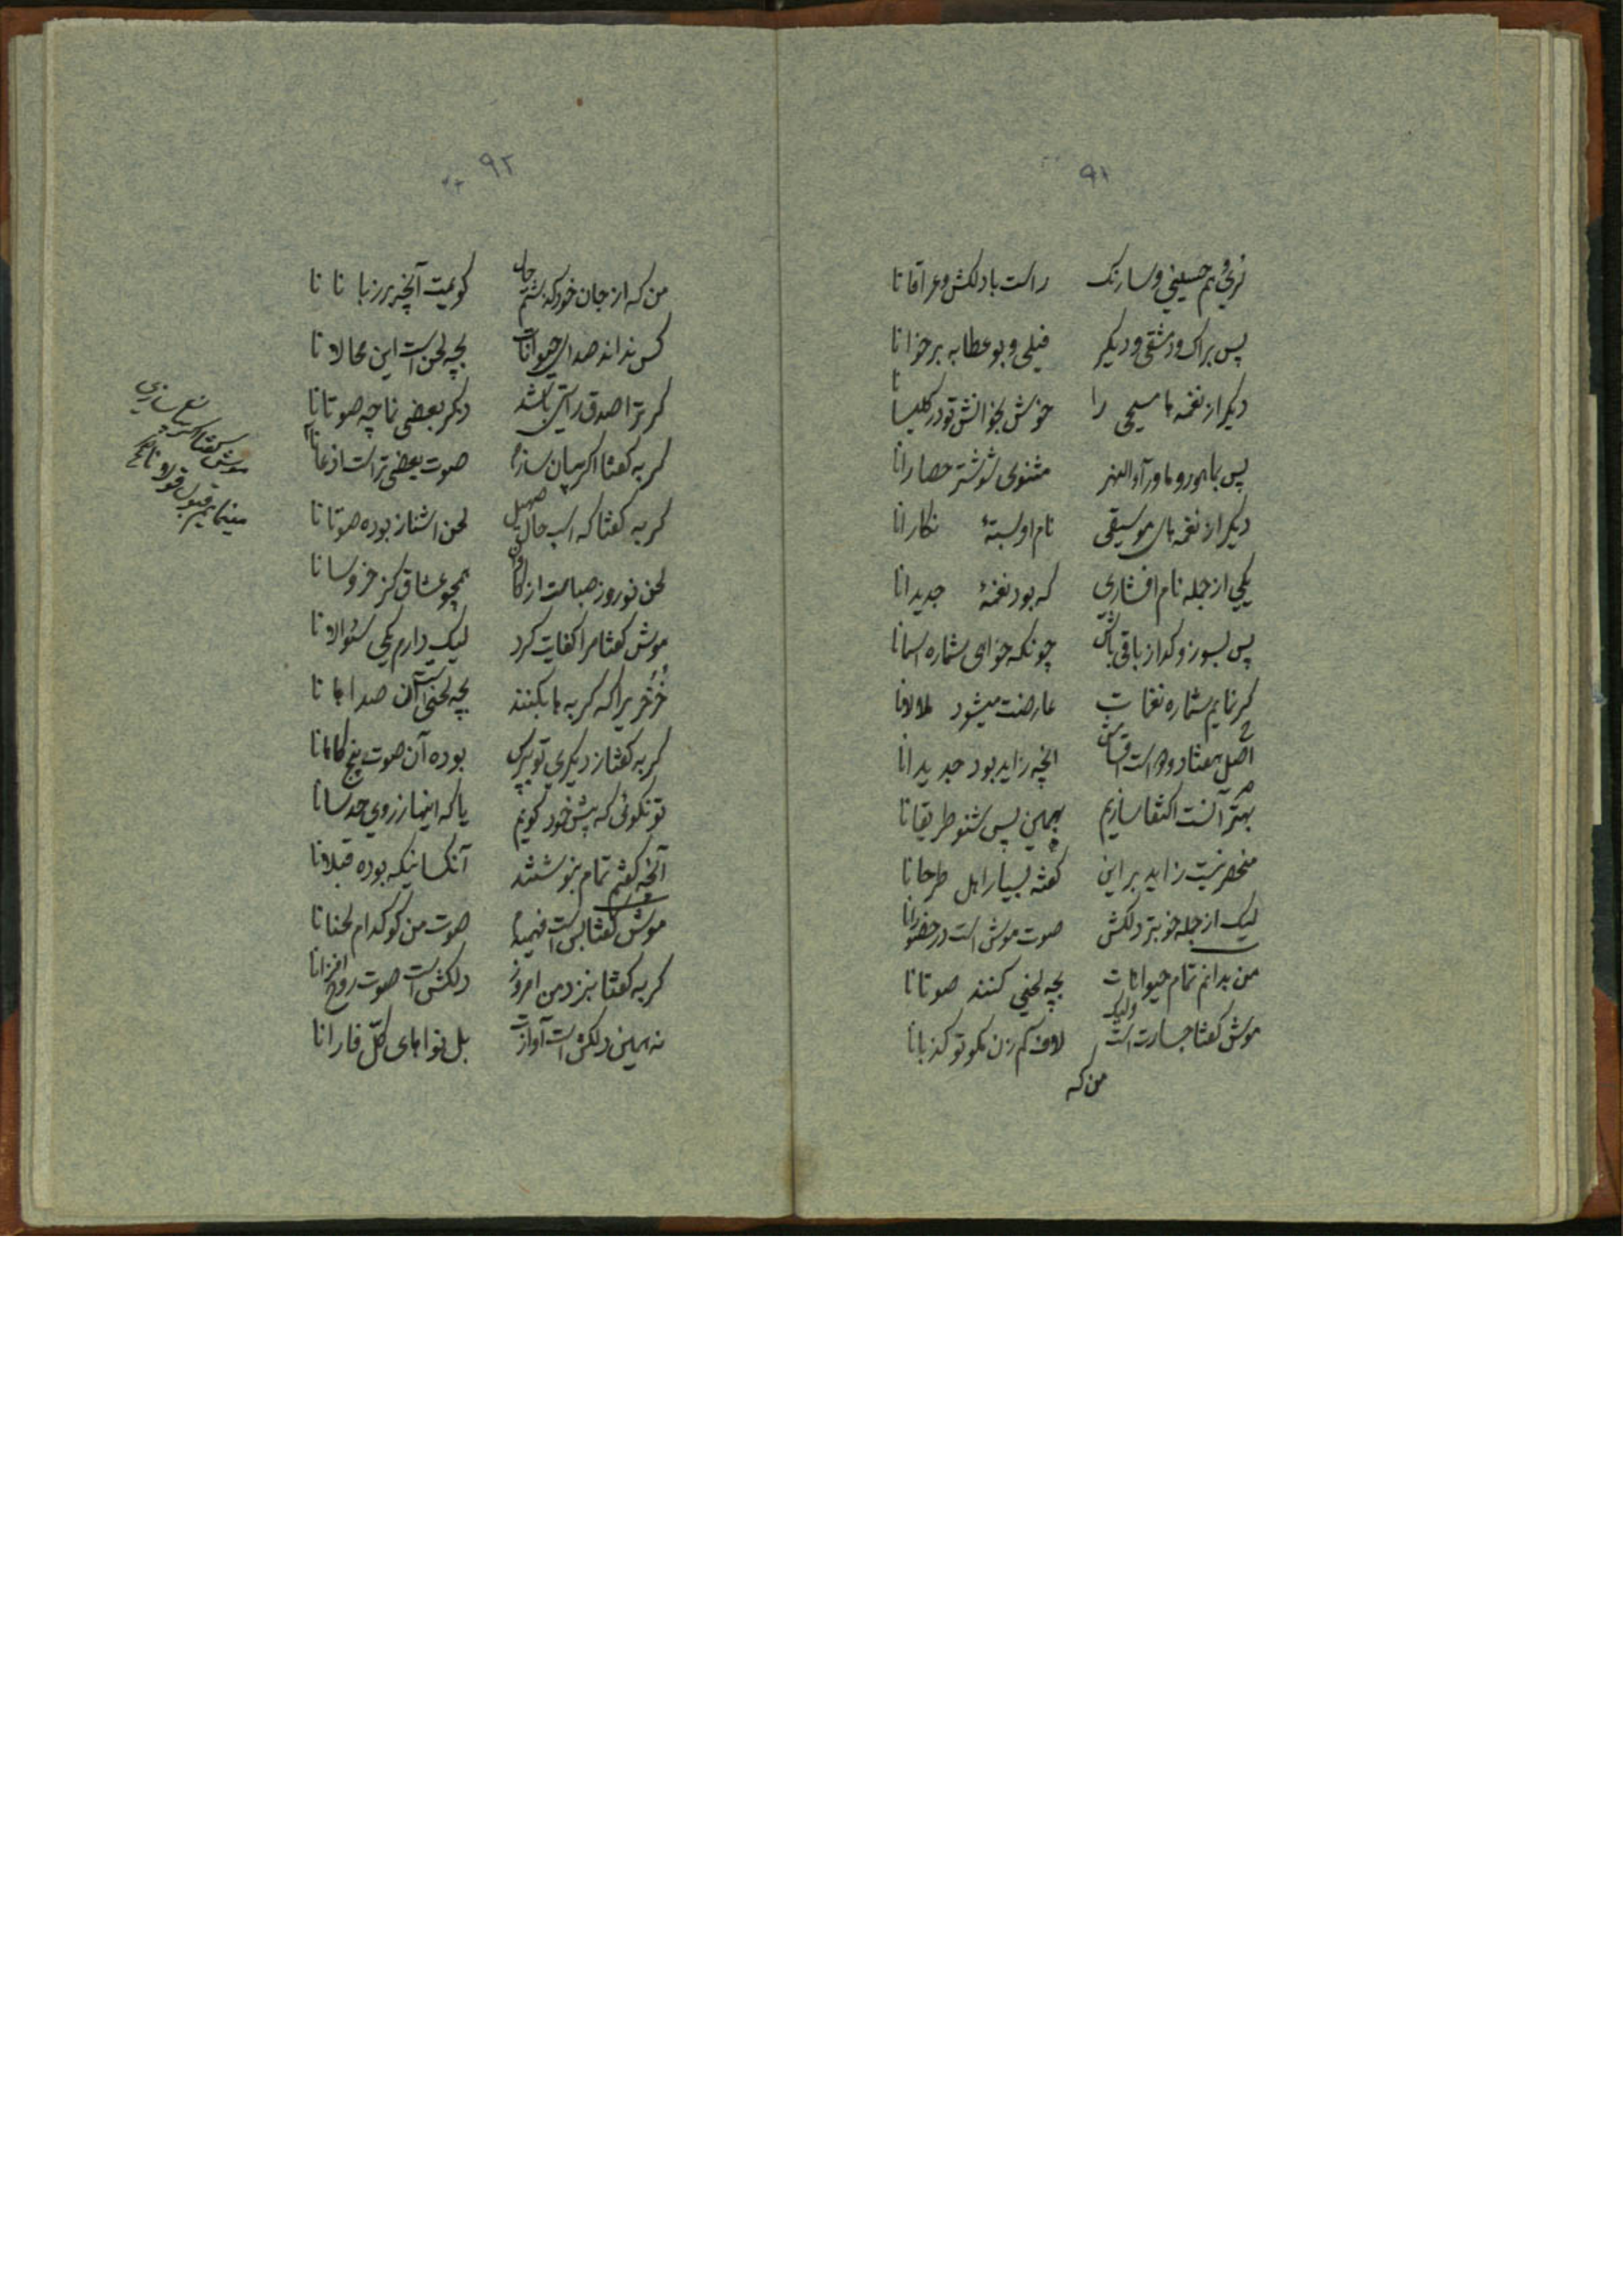 ۹۱
راست با دلکش و عراقانا
پس براک و دمشقی و دیگر فیلی و بوعطا به برخوانا
دیگر از نغمه ها مسیحی را خوش بخوانش تو در کلیسانا
پس باهور و ماورآءالنهر مثنوی شوشتر حصارانا
دیگر از نغمه های موسیقی نام او بستهٔ نکارانا
یکی از جمله نام افشاری که بود نغمهٔ جدیدانا
پس بسوز و کداز باقی باش چونکه خواهی شماره اسمانا
کر نمایم شماره نغمات عارضت میشود ملالانا
اصل هفتاد و دو است آنچه زاید بود جدیدانا
بهتر آنست اکتفا سازیم بهمین پس شنو طریقانا
منحصر نیست زاید بر این کفته بسیار اهل طرحانا
لیک از جمله خوبتر دلکش صوت موش است در حضورانا
من بدانم تمام حیوانات بچه لحنی کنند صوتانا
موش کفتا جسارت است ولیک لاف کم زن مکو تو کذبانا
من که
۹۲
من که از جان خود کذشتم حال کویمت آنچه بر زبانانا
کس نداند صدای حیوانات بچه لحن است این محالانا
کر ترا صدق راستی باشد دگر بعضی نما چه صوتانا
کربه کفتا اکر بیان سازم صوت بعضی تراست اذعانا
کربه کفتا که اسب حال صهیل لحن اشناز بوده صوتانا
لحن نوروز صباست از کاوان همچو عشاق کز خروسانا
موش کفتا مرا کفایت کرد لیک دارم یکی سئوالانا
خُرخُر یرا که کربه ها بکنند بچه لحنی است آن صداهانا
کربه کفتا ز دیکری تو بپرس بوده آن صوت پنج کاهانا
تو نکوئی که پیش خود کویم یا که اینها ز روی حدسانا
آنچه کفتم تمام بنوشتند آنکسانیکه بوده قبلانا
موش کفتا بس است فهمیدم صوت من کو کدام لحنانا
کربه کفتا بنزد من امروز دلکش است صوت روح افزانا
نه همین دلکش است آوازت بل نواهای کلّ فارانا
موش کفتا اکر بیان سازی
مینمایم قبول قولانا